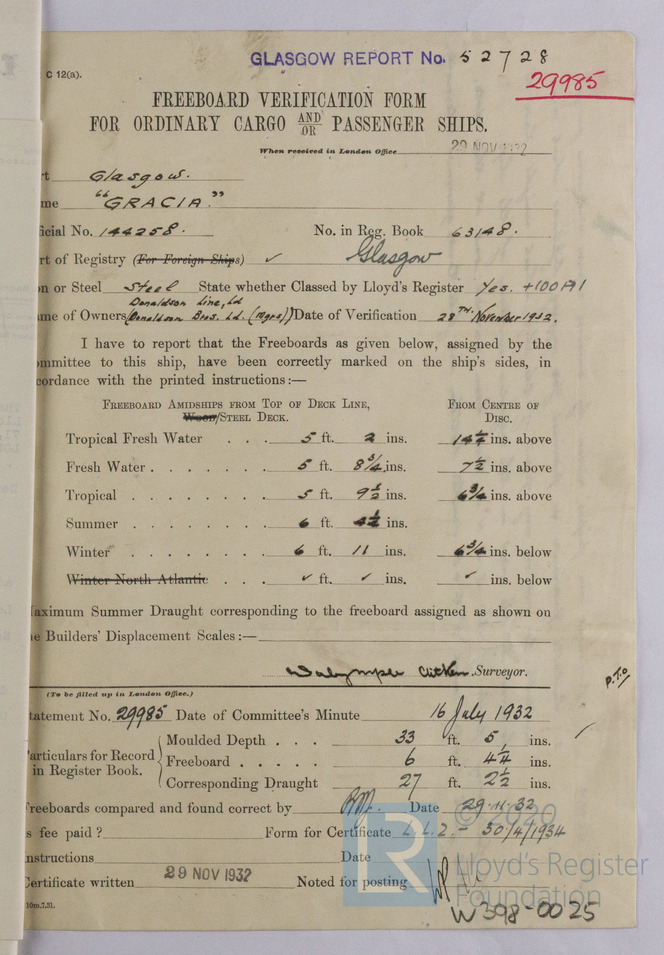 C 12(a).
GLASGOW REPORT No. 52728
29985
FREEBOARD VERIFICATION FORM
FOR ORDINARY CARGO AND/OR PASSENGER SHIPS.
When received in London Office 29 NOV 1932
rt Glasgow.
me "GRACIA."
icial No. 144258. No. in Reg. Book 63148.
rt of Registry (For Foreign Ships) ✓ Glasgow
n or Steel Steel State whether Classed by Lloyd's Register Yes. +100A1
Donaldson Line, Ld
me of Owners (Donaldson Bros. Ld. (Mgrs)) Date of Verification 28TH November 1932.
I have to report that the Freeboards as given below, assigned by the
ommittee to this ship, have been correctly marked on the ship's sides, in
cordance with the printed instructions:—
FREEBOARD AMIDSHIPS FROM TOP OF DECK LINE, FROM CENTRE OF
Wood/STEEL DECK. DISC.
Tropical Fresh Water . . . 5 ft. 2 ins. 14¼ ins. above
Fresh Water . . . . . . . 5 ft. 8¾ ins. 7½ ins. above
Tropical . . . . . . . . 5 ft. 9½ ins. 6¾ ins. above
Summer . . . . . . . . 6 ft. 4¼ ins.
Winter . . . . . . . . 6 ft. 11 ins. 6¾ ins. below
Winter North Atlantic . . . ✓ ft. ✓ ins. ✓ ins. below
aximum Summer Draught corresponding to the freeboard assigned as shown on
e Builders' Displacement Scales:—
Dalrymple Aitken, Surveyor.
P.T.O
(To be filled up in London Office.)
tatement No. 29985 Date of Committee's Minute 16 July 1932
articulars for Record in Register Book.
Moulded Depth . . . 33 ft. 5 ins.
Freeboard . . . . . 6 ft. 4¼ ins.
Corresponding Draught 27 ft. 2½ ins.
reeboards compared and found correct by Date 29.11.32
s fee paid? Form for Certificate L.L.2.- 30/4/1934
nstructions Date
ertificate written 29 NOV 1932 Noted for posting
10m.7,31.
© 2020
LR
Lloyd's Register
Foundation
W398-0025